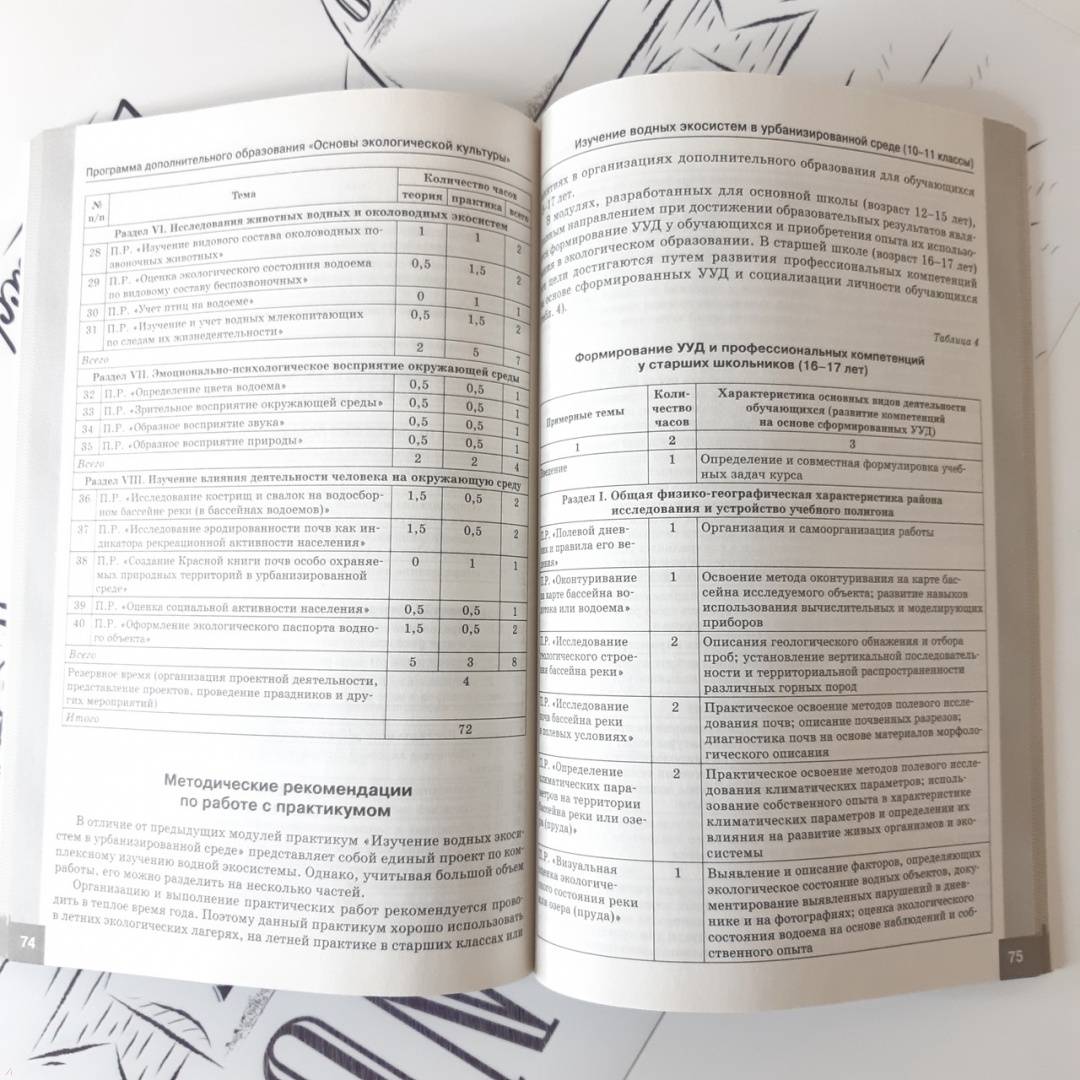 Программа дополнительного образования «Основы экологической культуры»
№ п/п Тема Количество часов
теория практика всего
Раздел VI. Исследования животных водных и околоводных экосистем
28 П.Р. «Изучение видового состава околоводных по- 1 1 2
звоночных животных»
29 П.Р. «Оценка экологического состояния водоема 0,5 1,5 2
по видовому составу беспозвоночных»
30 П.Р. «Учет птиц на водоеме» 0 1 1
31 П.Р. «Изучение и учет водных млекопитающих 0,5 1,5 2
по следам их жизнедеятельности»
Всего 2 5 7
Раздел VII. Эмоционально-психологическое восприятие окружающей среды
32 П.Р. «Определение цвета водоема» 0,5 0,5 1
33 П.Р. «Зрительное восприятие окружающей среды» 0,5 0,5 1
34 П.Р. «Образное восприятие звука» 0,5 0,5 1
35 П.Р. «Образное восприятие природы» 0,5 0,5 1
Всего 2 2 4
Раздел VIII. Изучение влияния деятельности человека на окружающую среду
36 П.Р. «Исследование кострищ и свалок на водосбор- 1,5 0,5 2
ном бассейне реки (в бассейнах водоемов)»
37 П.Р. «Исследование эродированности почв как ин- 1,5 0,5 2
дикатора рекреационной активности населения»
38 П.Р. «Создание Красной книги почв особо охраняе- 0 1 1
мых природных территорий в урбанизированной
среде»
39 П.Р. «Оценка социальной активности населения» 0,5 0,5 1
40 П.Р. «Оформление экологического паспорта водно- 1,5 0,5 2
го объекта»
Всего 5 3 8
Резервное время (организация проектной деятельности, 4
представление проектов, проведение праздников и дру-
гих мероприятий)
Итого 72
Методические рекомендации
по работе с практикумом
В отличие от предыдущих модулей практикум «Изучение водных экоси-
стем в урбанизированной среде» представляет собой единый проект по ком-
плексному изучению водной экосистемы. Однако, учитывая большой объем
работы, его можно разделить на несколько частей.
Организацию и выполнение практических работ рекомендуется прово-
дить в теплое время года. Поэтому данный практикум хорошо использовать
в летних экологических лагерях, на летней практике в старших классах или
74
Изучение водных экосистем в урбанизированной среде (10–11 классы)
в организациях дополнительного образования для обучающихся
лет.
В модулях, разработанных для основной школы (возраст 12–15 лет),
направлением при достижении образовательных результатов явля-
формирование УУД у обучающихся и приобретения опыта их использо-
в экологическом образовании. В старшей школе (возраст 16–17 лет)
цели достигаются путем развития профессиональных компетенций
основе сформированных УУД и социализации личности обучающихся
4).
Таблица 4
Формирование УУД и профессиональных компетенций
у старших школьников (16–17 лет)
Примерные темы Коли- Характеристика основных видов деятельности
чество обучающихся (развитие компетенций
часов на основе сформированных УУД)
1 2 3
1 Определение и совместная формулировка учеб-
ных задач курса
Раздел I. Общая физико-географическая характеристика района
исследования и устройство учебного полигона
П.Р. «Полевой днев- 1 Организация и самоорганизация работы
и правила его ве-
П.Р. «Оконтуривание 1 Освоение метода оконтуривания на карте бас-
карте бассейна во- сейна исследуемого объекта; развитие навыков
или водоема» использования вычислительных и моделирующих
приборов
П.Р. «Исследование 2 Описания геологического обнажения и отбора
строе- проб; установление вертикальной последователь-
бассейна реки» ности и территориальной распространенности
различных горных пород
П.Р. «Исследование 2 Практическое освоение методов полевого иссле-
почв бассейна реки дования почв; описание почвенных разрезов;
условиях» диагностика почв на основе материалов морфоло-
гического описания
П.Р. «Определение 2 Практическое освоение методов полевого иссле-
пара- дования климатических параметров; исполь-
на территории зование собственного опыта в характеристике
бассейна реки или озе- климатических параметров и определении их
(пруда)» влияния на развитие живых организмов и эко-
системы
П.Р. «Визуальная 1 Выявление и описание факторов, определяющих
экологиче- экологическое состояние водных объектов, доку-
состояния реки ментирование выявленных нарушений в днев-
озера (пруда)» нике и на фотографиях; оценка экологического
состояния водоема на основе наблюдений и соб-
ственного опыта
75